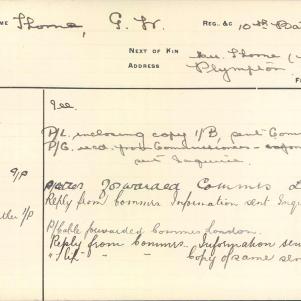 ME Thorne, G. W. REG. &c 10th Ba
NEXT OF KIN Thorne
ADDRESS Plympton
F
P/L. enclosing copy I/B, sent Com
P/C. recd. from Commissioner
sent Enquirer.
forwarded Commrs L
Reply from Commrs. Information sent Enq
P/Cable forwarded Commrs London.
Reply from Commrs. Information sen
" " " Copy of same sen